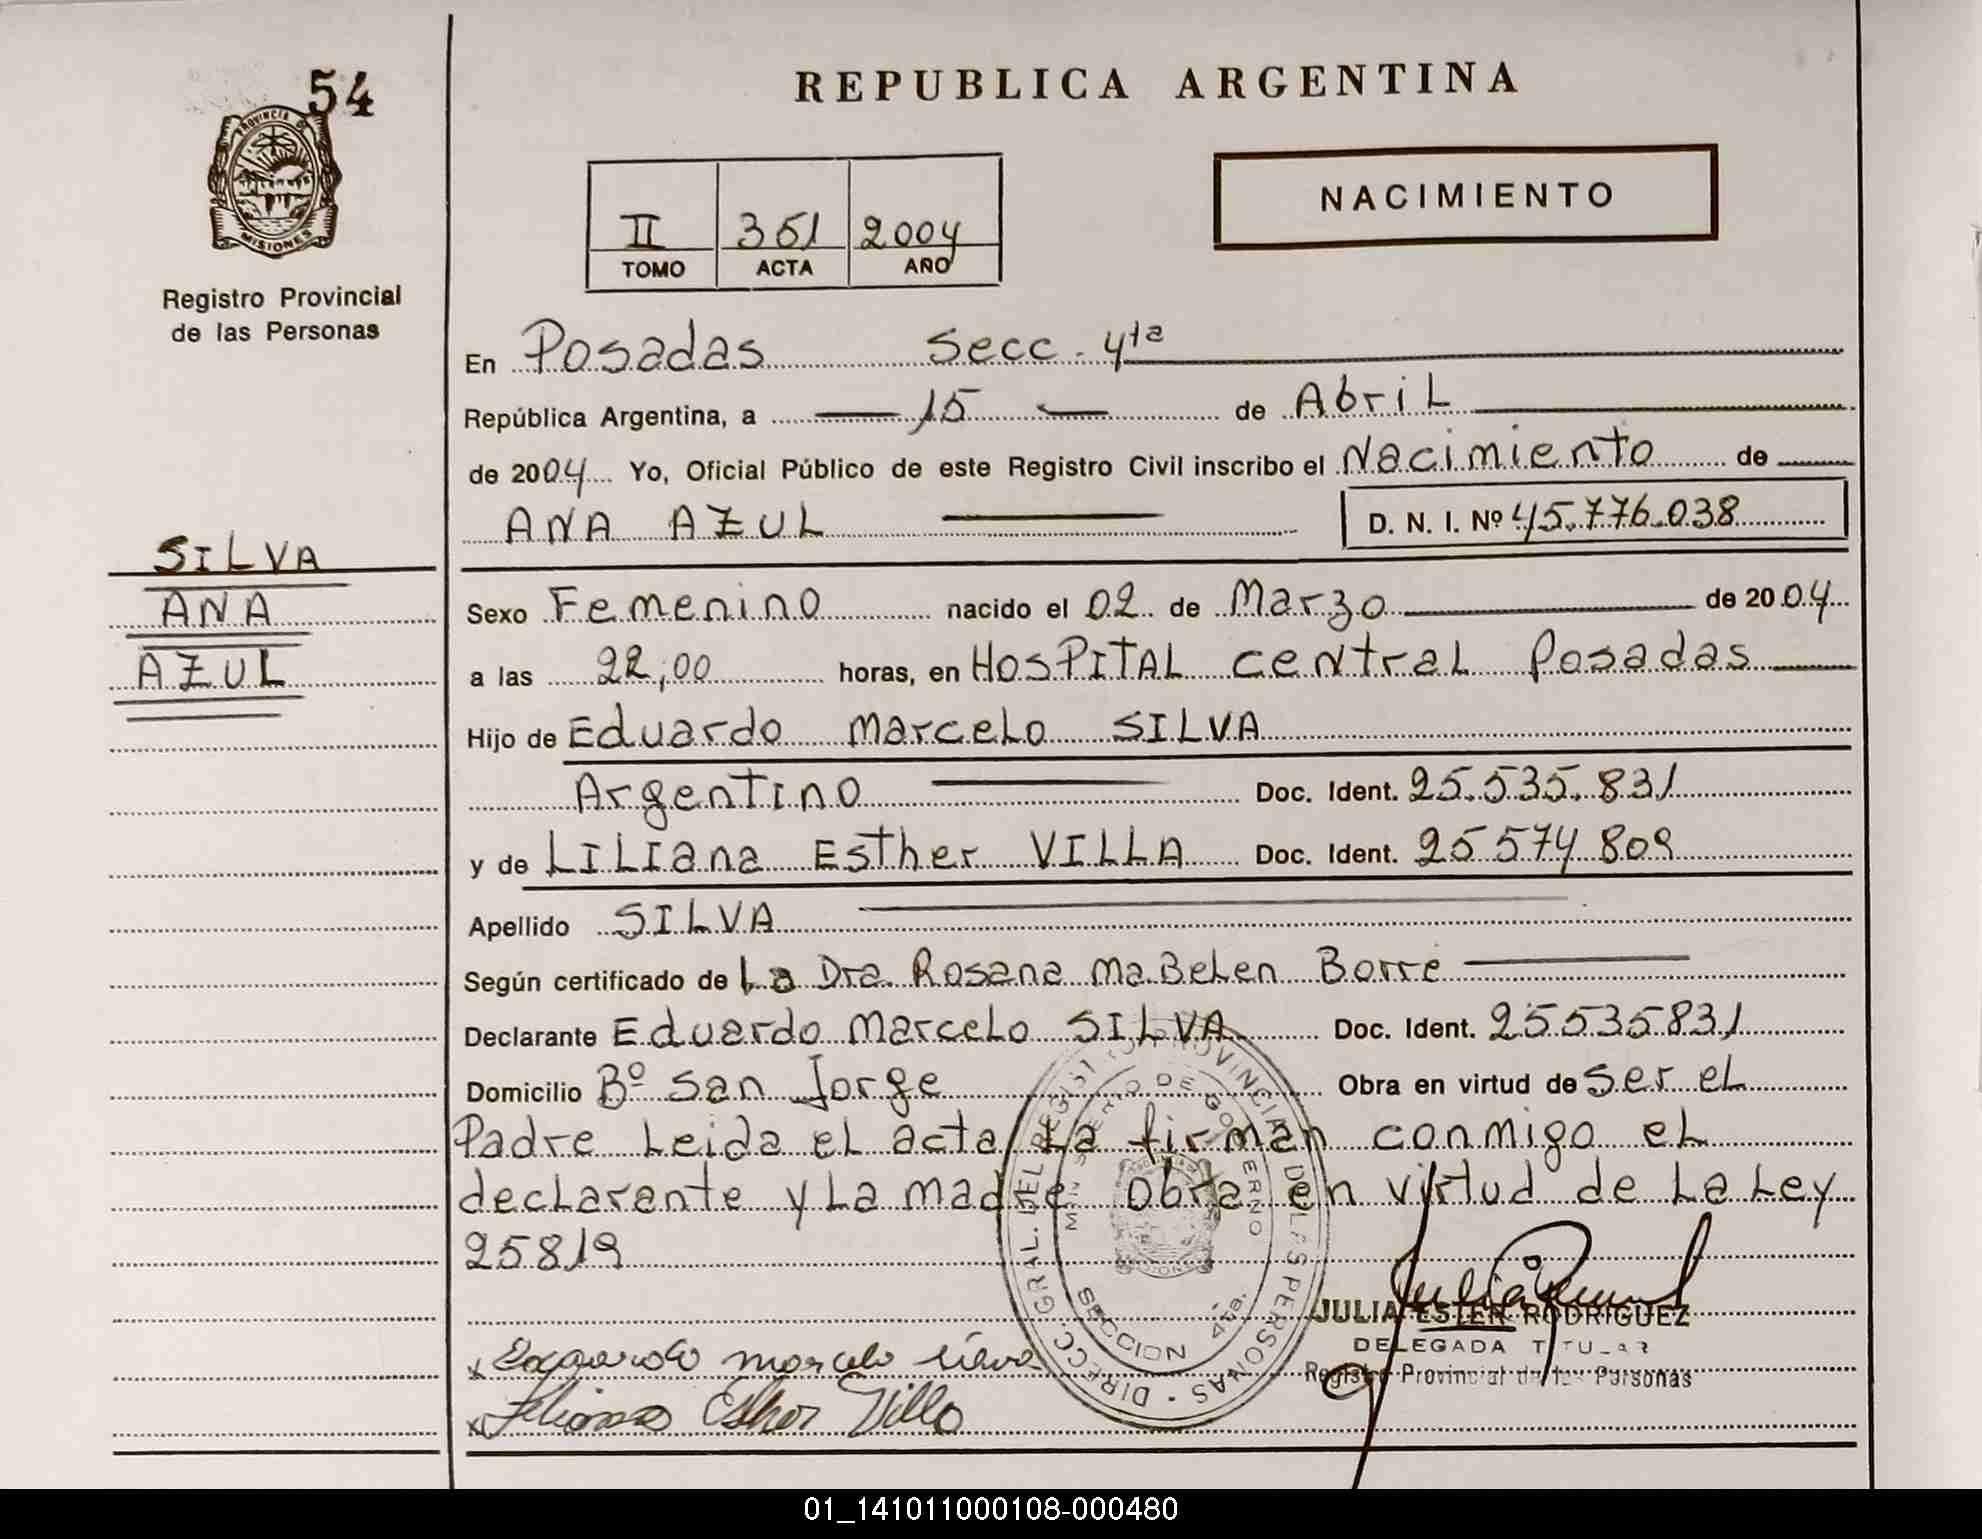 54
PROVINCIA DE
MISIONES
Registro Provincial
de las Personas
SILVA
ANA
AZUL
REPUBLICA ARGENTINA
NACIMIENTO
II 351 2004
TOMO ACTA AÑO
En Posadas Secc. 4ta
República Argentina, a 15 de Abril
de 2004 Yo, Oficial Público de este Registro Civil inscribo el Nacimiento de
ANA AZUL D. N. I. Nº 45.776.038
Sexo Femenino nacido el 02 de Marzo de 2004
a las 22,00 horas, en HOSPITAL central Posadas
Hijo de Eduardo Marcelo SILVA
Argentino Doc. Ident. 25.535.831
y de LILIana Esther VILLA Doc. Ident. 25 574 809
Apellido SILVA
Según certificado de La Dra. Rosana MaBelen Borre
Declarante Eduardo Marcelo SILVA Doc. Ident. 25535831
Domicilio Bº San Jorge Obra en virtud de ser el
Padre Leida el acta La firman conmigo el
declarante y La madre obra en virtud de La Ley
25819
DIRECC. GRAL. DEL REGISTRO PROVINCIAL DE LAS PERSONAS
MINISTERIO DE GOBIERNO
SECCION 4ta.
JULIA ESTER RODRIGUEZ
DELEGADA TITULAR
Registro Provincial de las Personas
x Eduardo Marcelo Silva
x Liliana Esther Villa
01_141011000108-000480